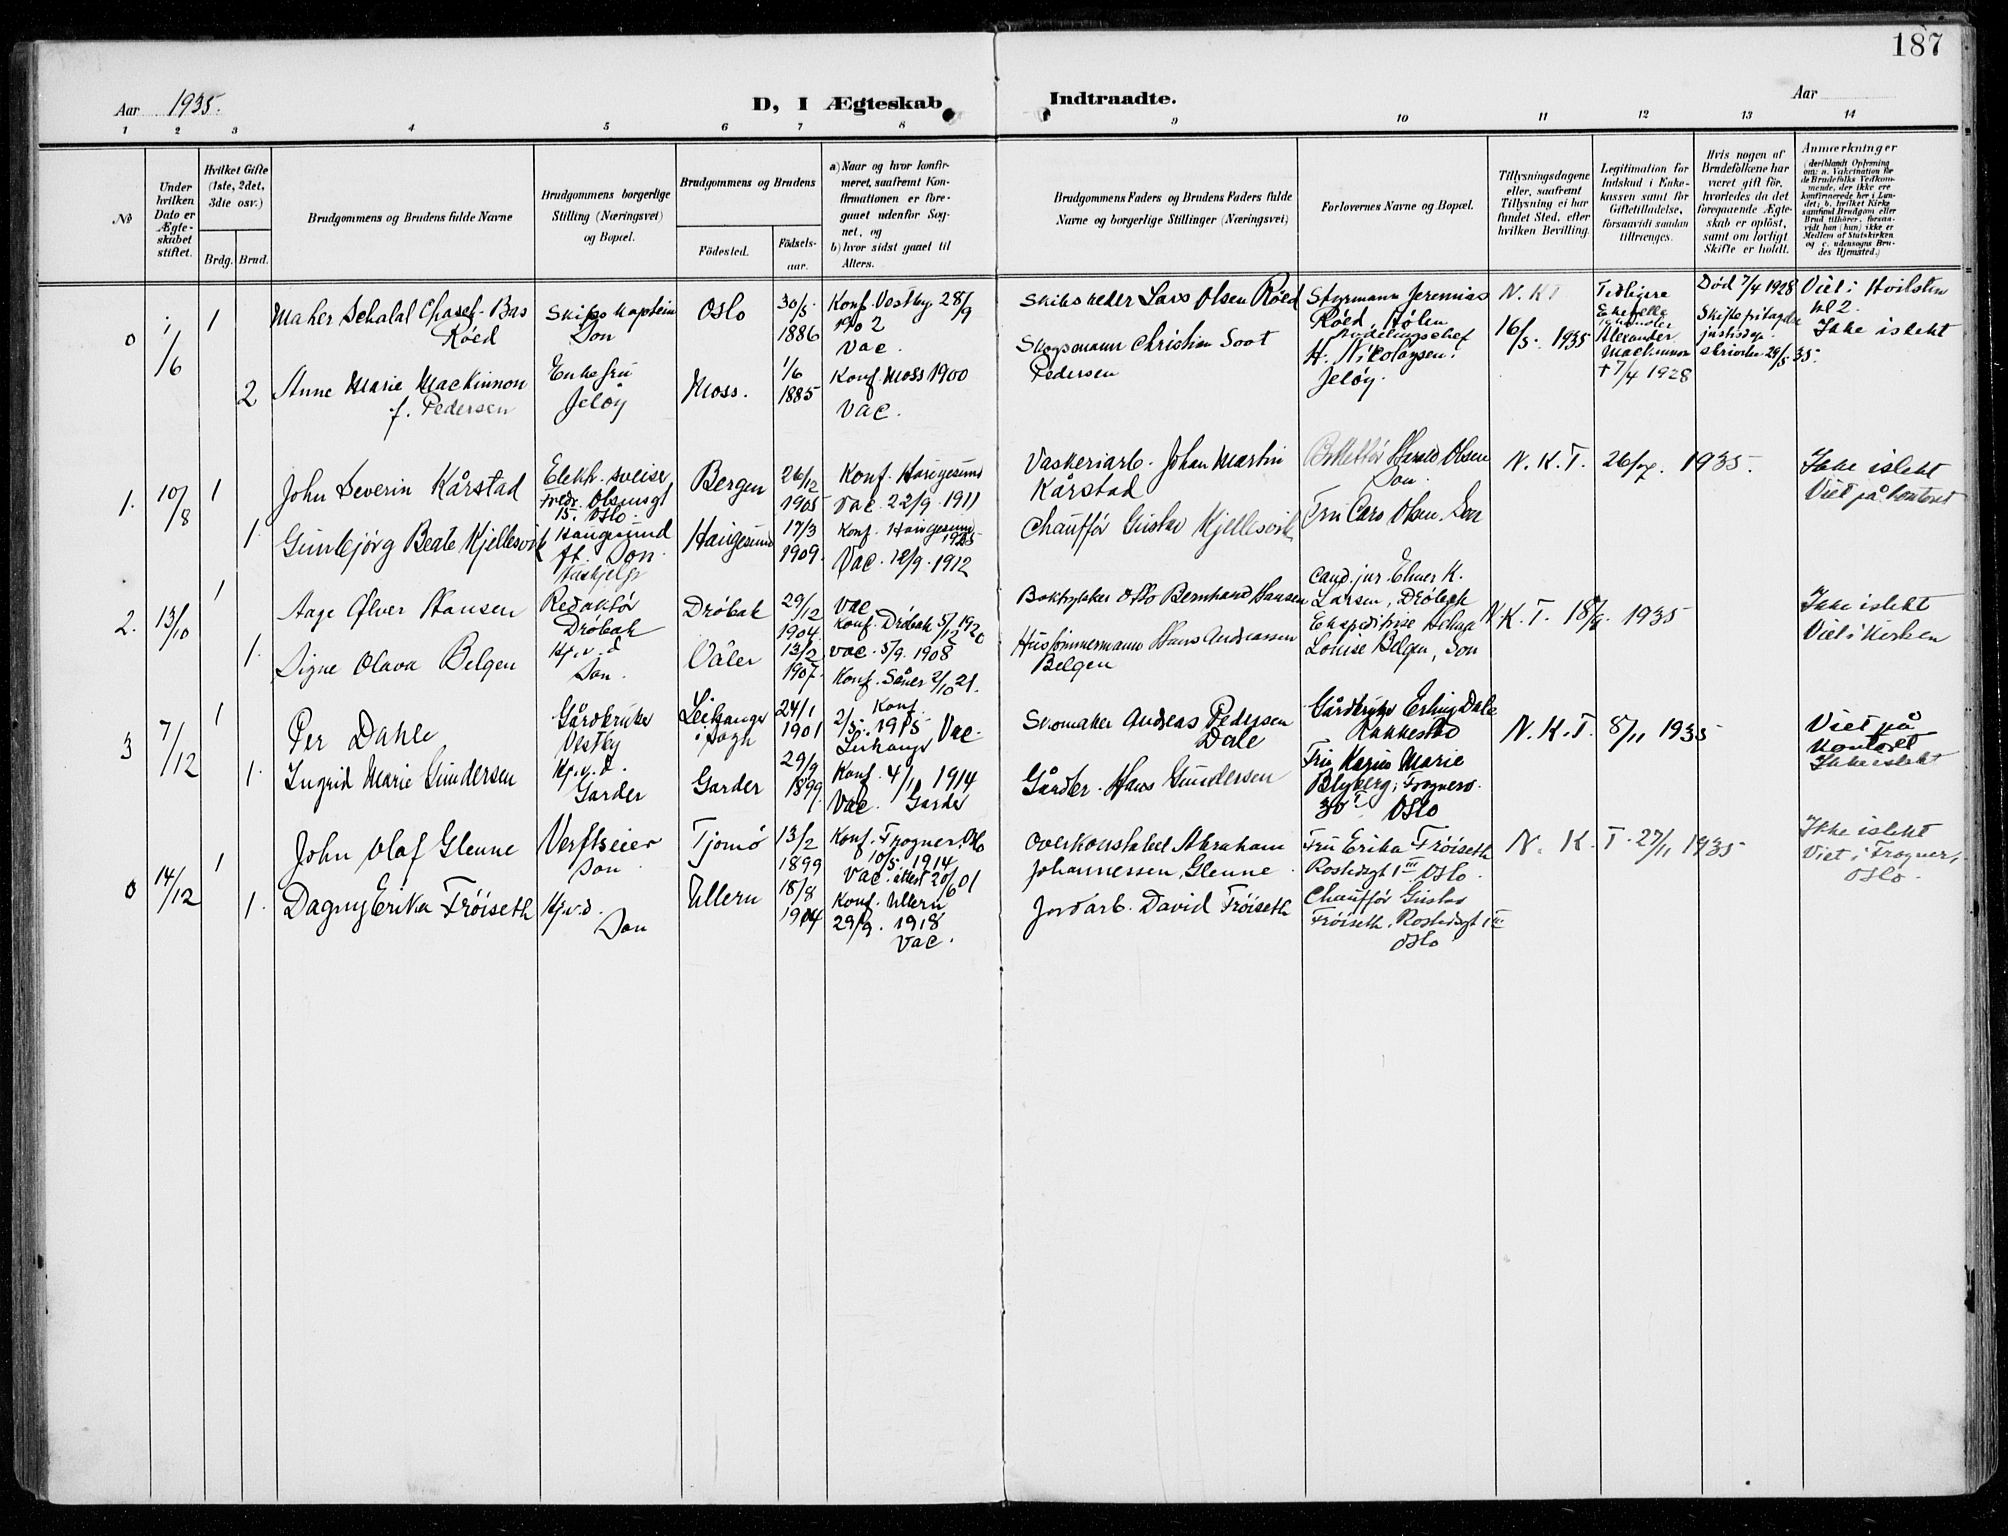 187
Aar 1935.
D, I Ægteskab Indtraadte.
Aar
1 2 3 4 5 6 7 8 9 10 11 12 13 14
No
Under hvilken Dato er Ægteskabet stiftet.
Hvilket Gifte (1ste, 2det, 3die osv.)
Brdg. Brud.
Brudgommens og Brudens fulde Navne
Brudgommens borgerlige Stilling (Næringsvei) og Bopæl.
Brudgommens og Brudens
Fødested.
Fødselsaar.
a) Naar og hvor konfirmeret, saafremt Konfirmationen er foregaaet udenfor Sognet, og
b) hvor sidst gaaet til Alters.
Brudgommens Faders og Brudens Faders fulde Navne og borgerlige Stillinger (Næringsvei)
Forlovernes Navne og Bopæl.
Tillysningsdagene eller, saafremt Tillysning ei har fundet Sted, efter hvilken Bevilling.
Legitimation for Indskud i Enkekassen samt for Giftetilladelse, forsaavidt saadan tiltrænges.
Hvis nogen af Brudefolkene har været gift før, hvorledes da det foregaaende Ægteskab er opløst, samt om lovligt Skifte er holdt.
Anmærkninger
(deriblandt Oplysning om: a. Vakcination for de Brudefolks Vedkommende, der ikke ere konfirmerede her i Landet; b. hvilket Kirkesamfund Brudgom eller Brud tilhører, forsaavidt han (hun) ikke er Medlem af Statskirken og c. udensogns Brudes Hjemsted.)
0 1/6 1
Maher Schalal Chasch-Bas
Røed
Skibskaptein
Son
Oslo
30/5 1886
Konf. Vestby 28/9
1902
Vac.
Skibsreder Lars Olsen Røed
Styrmann Jeremias
Røed, Hølen
Avdelingschef
H. Nikolaysen,
Jeløy.
N. K. T
16/5 1935
Tidligere
Alexander
Mackinnon
† 7/4 1928
Død 7/4 1928
29/5 35.
Viet i Hvitsten
kl 2.
Ikke i slekt
2
Anne Marie Mackinnon
f. Pedersen
Enkefru
Jeløy
Moss.
1/6
1885
Konf. Moss 1900
Vac.
Christian Soot
Pedersen
1. 10/8 1
John Severin Kårstad
Elektr. sveiser
Fredr. Olsensgt
15. Oslo.
Bergen
26/12
1905
Konf. Haugesund
Vac. 22/9. 1911
Vaskeriarb. Johan Martin
Kårstad
Harald Olsen
Son.
N. K. T. 26/7. 1935.
Ikke i slekt
Viet på kontoret
1.
Gunbjørg Beate Kjellesvik
Haugesund
ft. Son.
Haugesund
17/3
1909.
Konf. Haugesund
1925
Vac. 12/9. 1912
Chauffør Gustav Kjellesvik
Fru Olsen. Son
2. 13/10 1
Aage Ølver Hansen
Redaktør
Drøbak
Drøbak
29/12
1904.
Vac
Konf. Drøbak 5/12 1920
Boktrykker Otto Bernhard Hansen
Cand. jur. Elmer K.
Larsen, Drøbak
N. K. T. 18/9 1935
Ikke i slekt
Viet i kirken
1.
Signe Olava Belgen
Hj. v. d
Son.
Våler
13/2
1907.
Vac. 5/9. 1908
Konf. Såner 2/10 21.
Hustømmermann Hans Andreassen
Belgen
Ekspeditrise Helga
Louise Belgen, Son
3 7/12 1
Per Dahle
Gårdbruker
Vestby
Leikanger
i Sogn
24/1
1901
Konf.
2/5. 1915
Leikanger Vac.
Skomaker Andreas Pedersen
Dale
Gårdbruker Erling Dale
Rakkestad
N. K. T. 8/11 1935
Viet på
kontoret
Ikke i slekt
1.
Ingrid Marie Gundersen
Hj. v. d.
Garder
Garder
29/9
1899.
Konf. 4/11 1914
Vac. Garder
Gårdbr. Hans Gundersen
Fru Marie
30 I Oslo
0 14/12 1
John Olaf Glenne
Verftseier
Son
Tjømø
13/2
1899
Konf. Frogner, Oslo
10/5. 1914
Vac. attest 20/6 01
Overkonstabel Abraham
Johannessen Glenne
Fru Erika Frøiseth
N. K. T. 27/11 1935
Ikke i slekt
Viet i Frogner,
Oslo.
1.
Dagny Erika Frøiseth
Hj. v. d.
Son
Ullern
18/8
1904
Konf. Ullern
29/9. 1918
Vac.
Jordarb. David Frøiseth
Chauffør Gustav
Frøiseth, III
Oslo